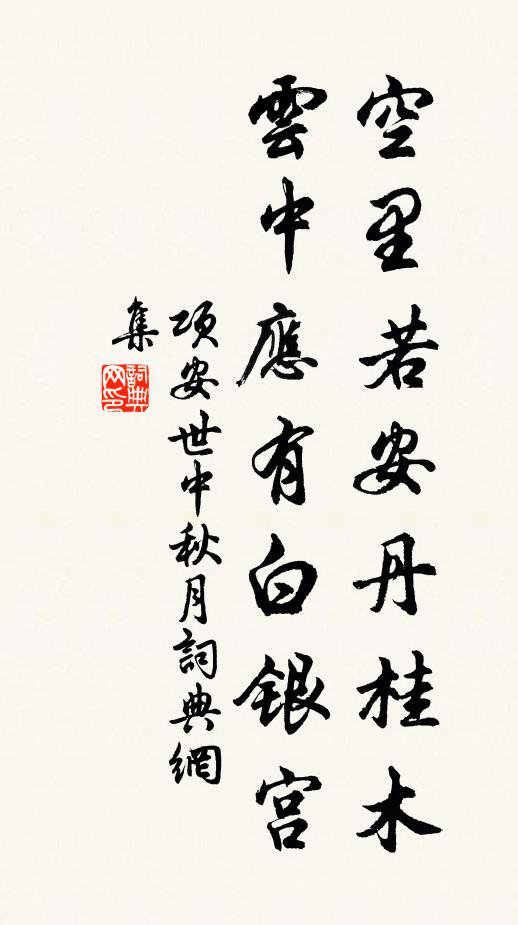 空里若安丹桂木
雲中應有白銀宮
項安世中秋月詞典網
集
詞典
网印